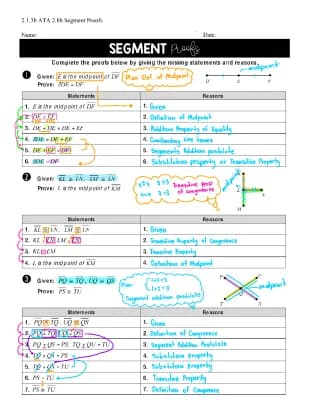 2.1.3b ATA 2.8b Segment Proofs
Name:
Date:
SEGMENT Proofs
Complete the proofs below by giving the missing statements and reasons.
1 Given: E is the midpoint of DF
Prove: 2DE = DF
Plan Def of Midpoint
midpoint
D E F
Statements Reasons
1. E is the midpoint of DF 1. Given
2. DE = EF 2. Definition of Midpoint
3. DE + DE = DE + EF 3. Addition Property of Equality
4. 2DE = DE + EF 4. Combining like terms
5. DE + EF = DF 5. Segments Addition postulate
6. 2DE = DF 6. Substitution property or Transitive Property
2 Given: KL ≅ LN, LM ≅ LN
Prove: L is the midpoint of KM
Transitive prop of congruence
Statements Reasons
1. KL ≅ LN, LM ≅ LN 1. Given
2. KL = LN, LM = LN 2. Transitive Property of Congruence
3. KL = LM 3. Transitive Property
4. L is the midpoint of KM 4. Definition of Midpoint
3 Given: PQ ≅ TQ, UQ ≅ QS
Prove: PS ≅ TU
Plan:
1+2=3
1+2=3
Segment addition postulate
midpoint
Statements Reasons
1. PQ ≅ TQ, UQ ≅ QS 1. Given
2. PQ = TQ, UQ = QS 2. Definition of Congruence
3. PQ + QS = PS, TQ + QU = TU 3. Segment Addition Postulate
4. TQ + QS = PS 4. Substitution Property
5. TQ + QS = TU 5. Substitution Property
6. PS = TU 6. Transitive Property
7. PS ≅ TU 7. Definition of Congruence